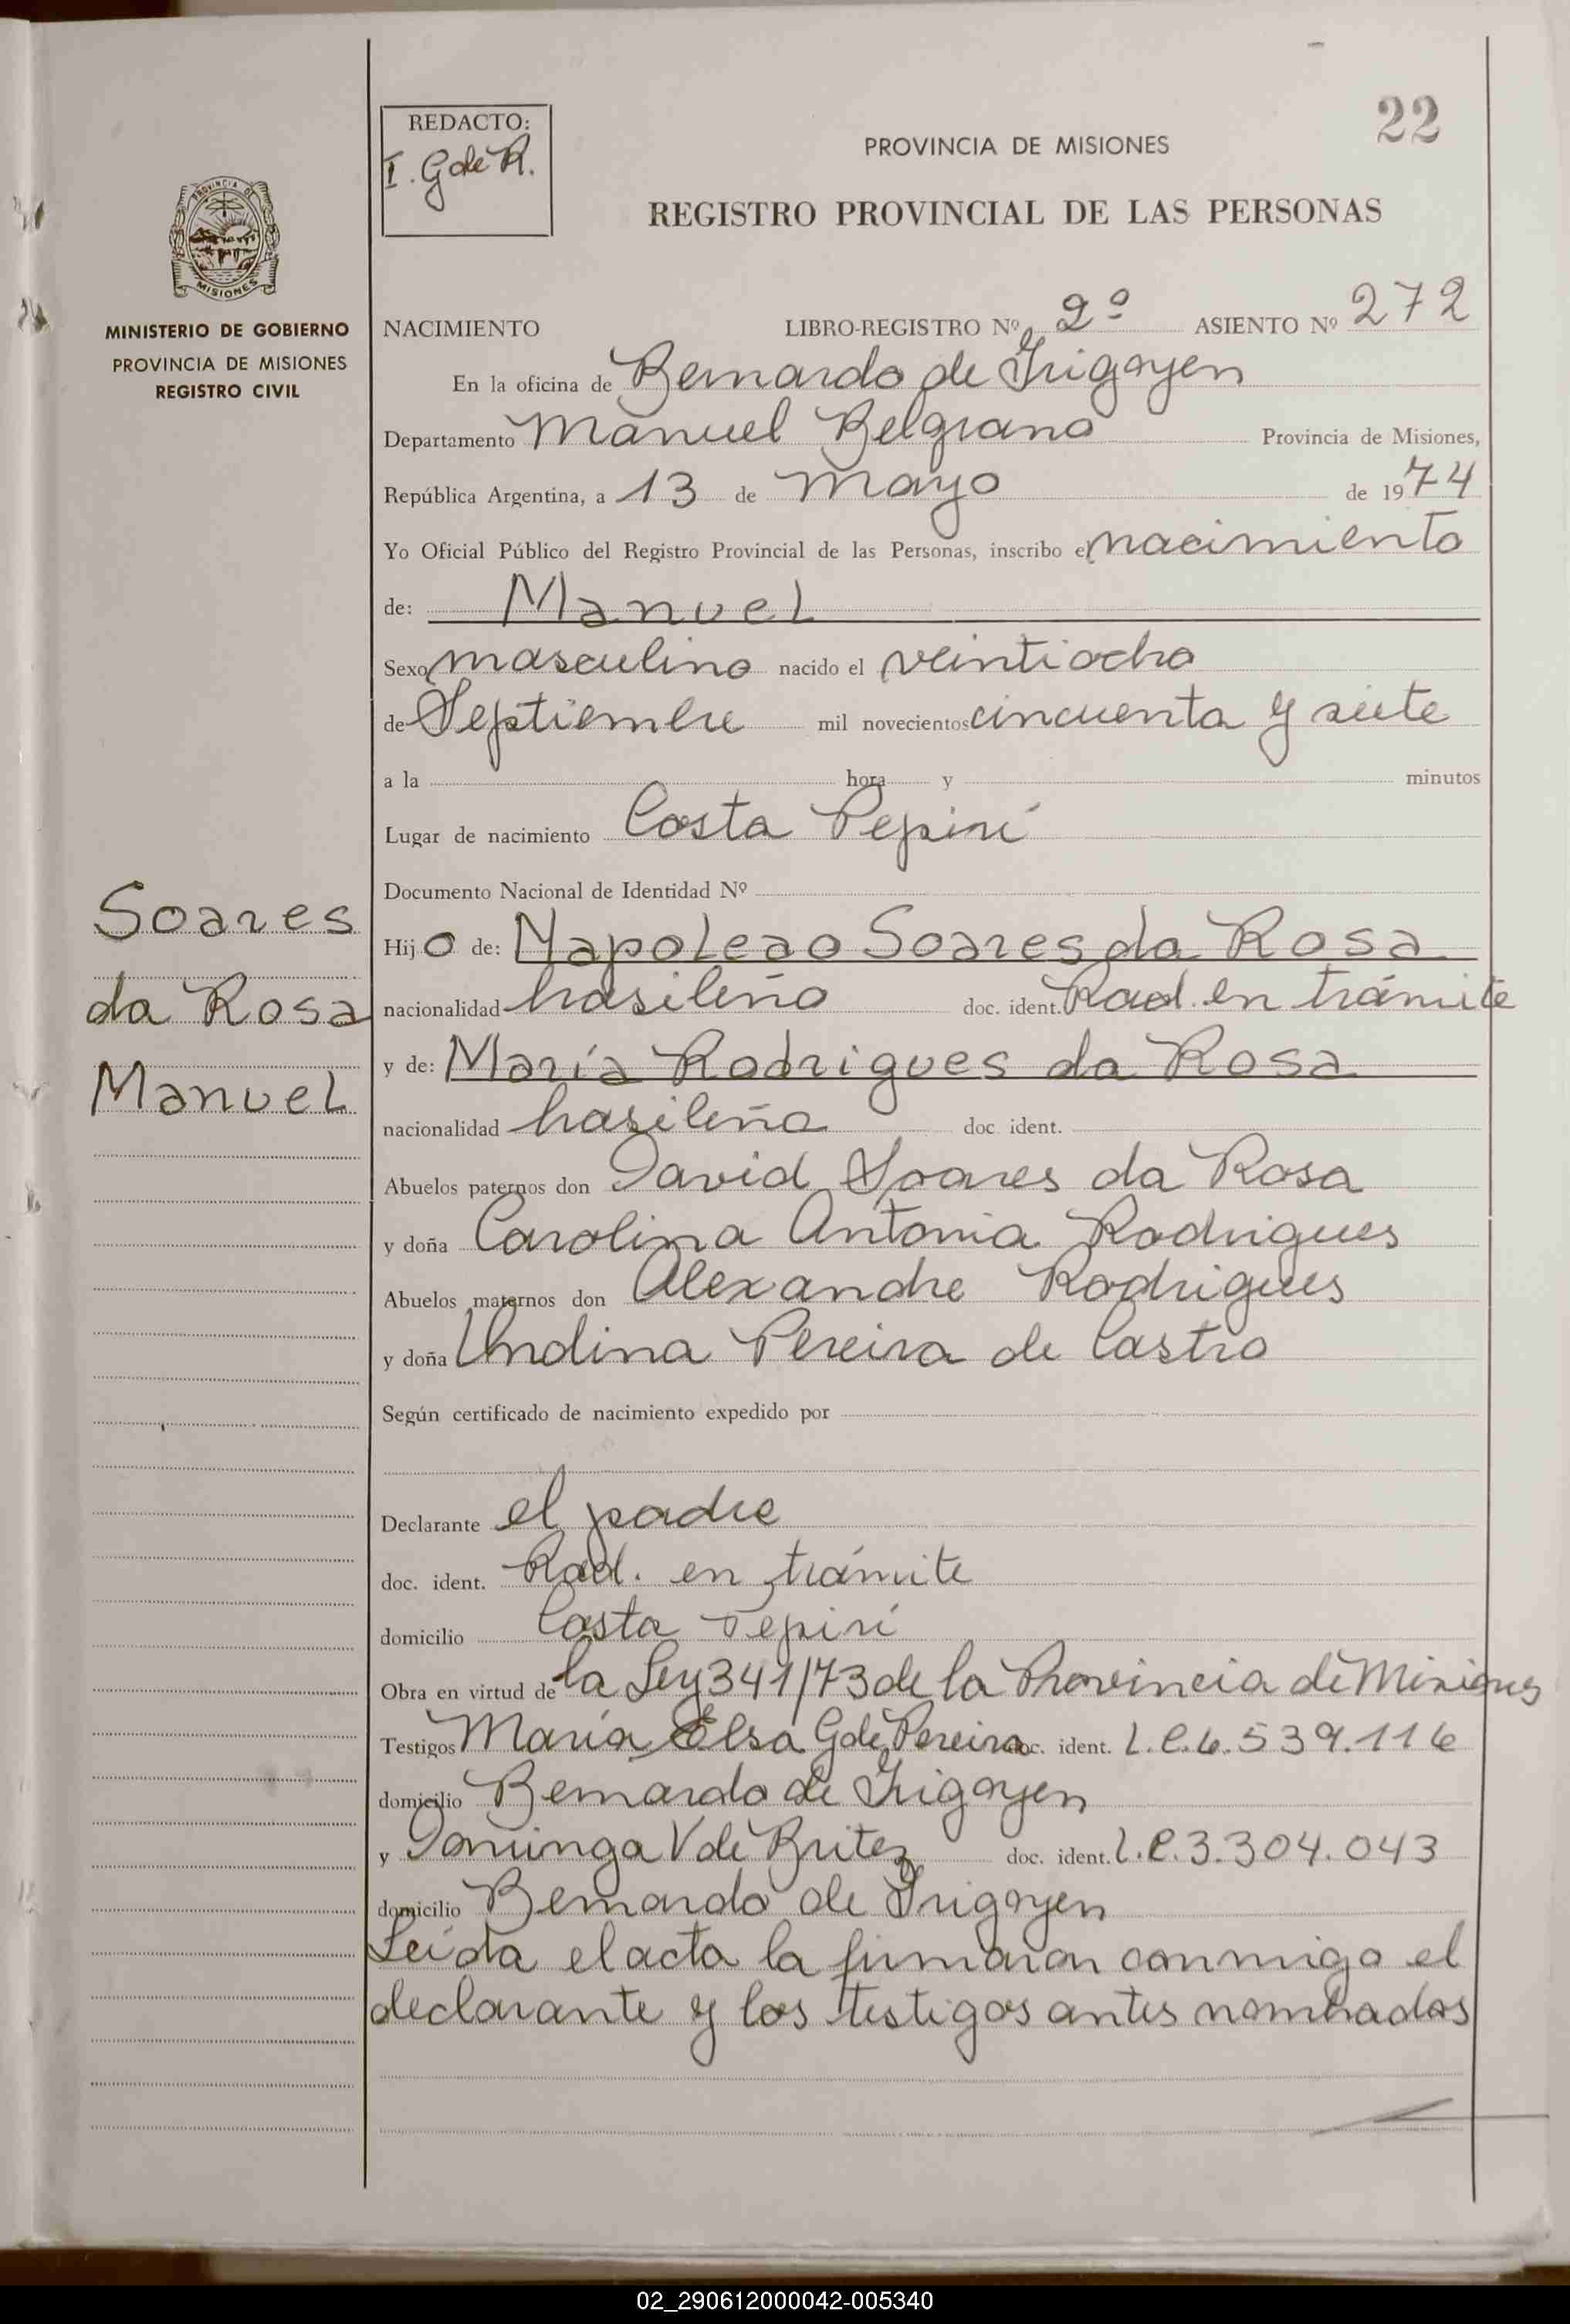 22
REDACTO:
I. G de R.
PROVINCIA DE MISIONES
REGISTRO PROVINCIAL DE LAS PERSONAS
PROVINCIA DE
MISIONES
MINISTERIO DE GOBIERNO
PROVINCIA DE MISIONES
REGISTRO CIVIL
NACIMIENTO LIBRO-REGISTRO Nº 2º ASIENTO Nº 272
En la oficina de Bernardo de Irigoyen
Departamento Manuel Belgrano Provincia de Misiones,
República Argentina, a 13 de mayo de 1974
Yo Oficial Público del Registro Provincial de las Personas, inscribo el nacimiento
de: Manuel
Sexo masculino nacido el veintiocho
de Septiembre mil novecientos cincuenta y siete
a la hora y minutos
Lugar de nacimiento Costa Pepirí
Documento Nacional de Identidad Nº
Soares
da Rosa
Manuel
Hijo de: Napoleao Soares da Rosa
nacionalidad brasileño doc. ident. Rad. en trámite
y de: María Rodrigues da Rosa
nacionalidad brasileña doc. ident.
Abuelos paternos don David Soares da Rosa
y doña Carolina Antonia Rodrigues
Abuelos maternos don Alexandre Rodrigues
y doña Undina Pereira de Castro
Según certificado de nacimiento expedido por
Declarante el padre
doc. ident. Rad. en trámite
domicilio Costa Pepirí
Obra en virtud de la Ley 341/73 de la Provincia de Misiones
Testigos María Elsa G de Pereira doc. ident. L.C. 6.539.116
domicilio Bernardo de Irigoyen
y Dominga V de Britez doc. ident. L.C. 3.304.043
domicilio Bernardo de Irigoyen
Leída el acta la firmaron conmigo el
declarante y los testigos antes nombrados
02_290612000042-005340